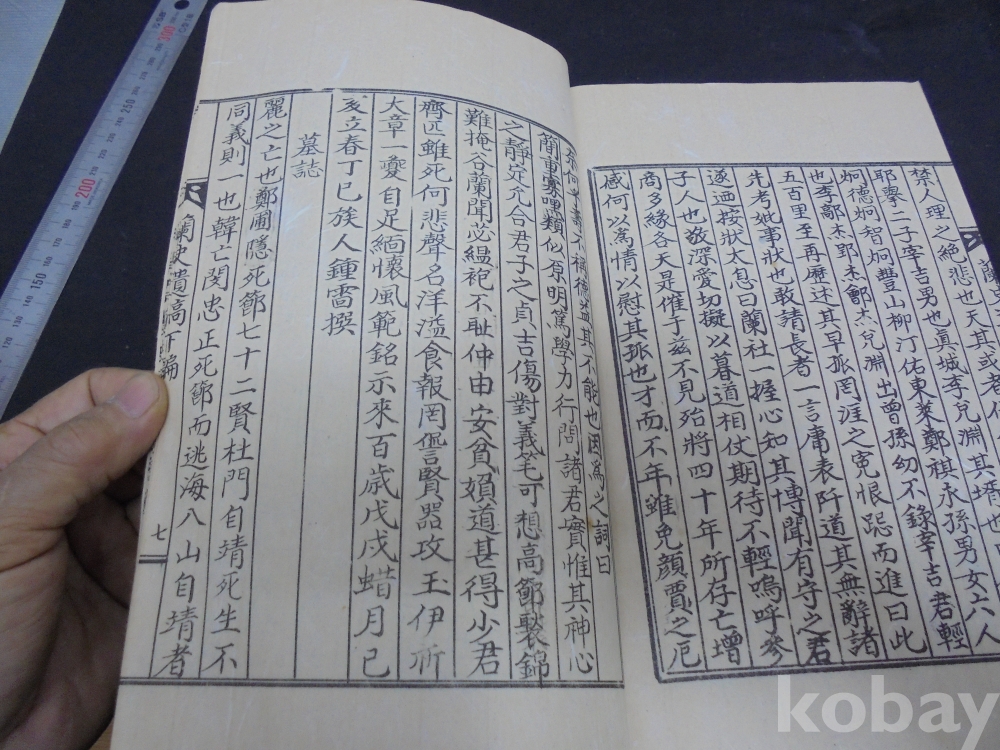 禁人理之絶悲也天其或者
耶擧二子宰吉男也眞城李兌淵其壻也
炯德炯智炯豐山柳汀佑東萊鄭祺永孫男女六人
也李鄙杰郢杰鄶杰兌淵出曾孫幼不錄宰吉君輕
五百里至再歷述其早孤罔涯之寃恨跽而進曰此
先考妣事狀也敢請長者一言庸表阡道其無辭諸
遂迺按狀大息曰蘭社一握心知其博聞有守之君
子人也敬深愛切擬以暮道相仗期待不輕嗚呼參
商多緣各天是催于玆不見殆將四十年所存亡增
感何以爲情以慰其孤也才而不年雖免顔賈之厄
不稱德 其不能也因爲之詞曰
簡重寡嘿類似原明篤學力行問諸君實惟其神心
之靜定允合君子之貞吉傷對義笔可想高節褧錦
難掩谷蘭聞必縕袍不耻仲由安貧嬪道甚得少君
齊匹雖死何悲聲名洋溢食報罔愆賢器攻玉伊所
大章一夔自足緬懷風範銘示來百歲戊戌蜡月己
亥立春丁巳族人鍾雷撰
墓誌
麗之亡也鄭圃隱死節七十二賢杜門自靖死生不
同義則一也韓亡閔忠正死節而逃海入山自靖者
蘭史遺稿
七
300
250
200
150
140
130
120
kobay